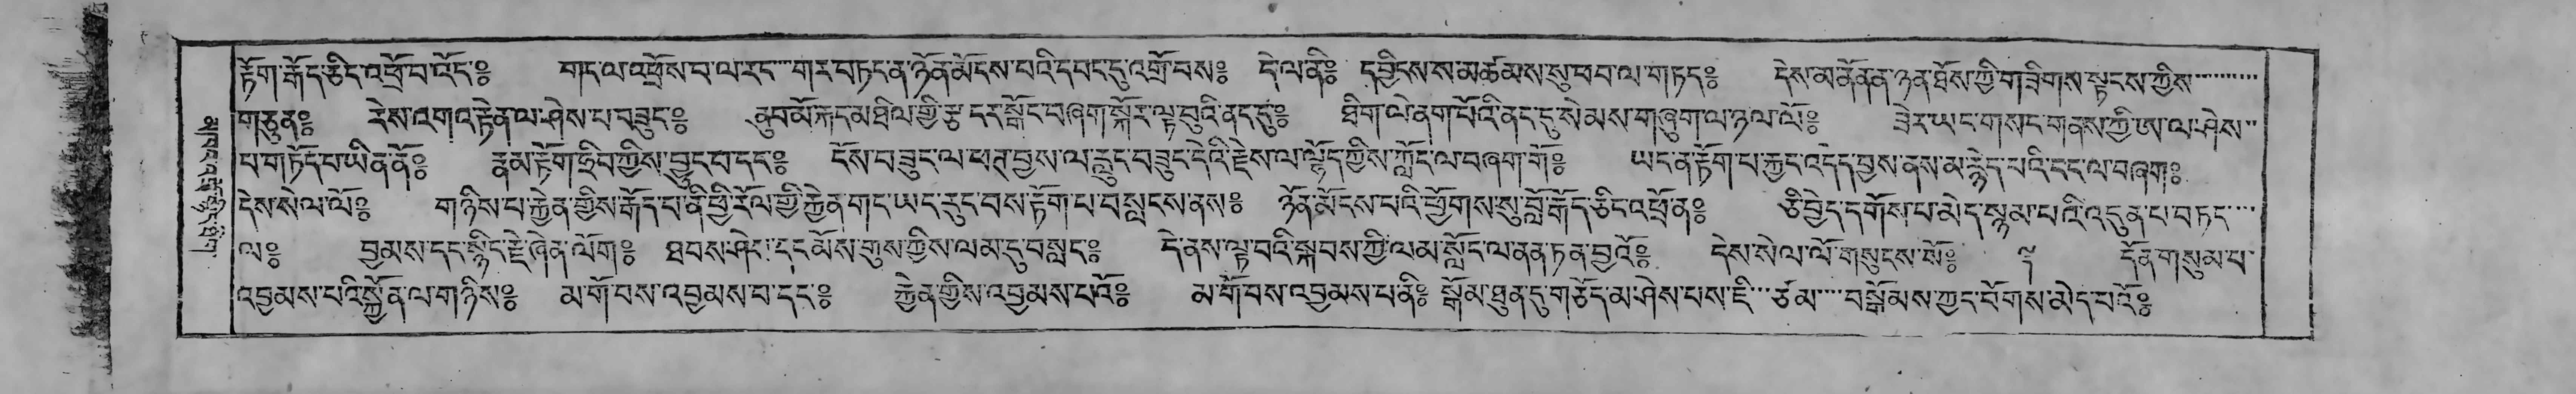 རྟོག་རྒོད་ཅིད་འཕྲོ་བ་འོད༔ གད་ལ་འཕྲོས་བ་ལ་རང་གར་བཏད་ན་ཉོན་མོངས་པའི་དབང་དུ་འགྲོ་བས༔ དེ་ལ་ནི༔ དབྱིངས་ས་མཚམས་སུ་ཕབ་ལ་གཏད༔ དེས་མ་ནོན་ན་ཉན་ཐོས་ཀྱི་གཟིགས་སྟངས་ཀྱིས
གཅུན༔ རེས་འགའ་རྟེན་ལ་ཤེས་པ་བཟུང༔ ནུབ་མོ་རྐང་མཐིལ་གྱི་རྩ་དར་སྒོང་བཞག་སྐོར་ལྟ་བུའི་ནང་དུ༔ ཐིག་ལེ་ནག་པོའི་ནང་དུ་སེམས་གཞུག་ལ་ཉལ་ལོ༔ ཟེར་ཡང་གསང་གནས་ཀྱི་ཨ་ལ་ཤེས
པ་གཏོད་པ་ཡིན་ནོ༔ རྣམ་རྟོག་ཧྲིབ་ཀྱིས་བྱུང་བ་དང༔ ངོས་བཟུང་ལ་ཕཊ་བྱས་ལ་རླུང་བཟུང་དེའི་རྗེས་ལ་ལྷོད་ཀྱིས་ཀློད་ལ་བཞག་གོ༔ ཡང་ན་རྟོག་པ་རྐྱང་འདེད་བྱས་ནས་མ་རྙེད་པའི་ངང་ལ་བཞག༔
དེས་སེལ་ལོ༔ གཉིས་པ་རྐྱེན་གྱིས་རྒོད་པ་ནི་ཕྱི་རོལ་གྱི་རྐྱེན་གང་ཡང་རུང་བས་རྟོག་པ་བསླངས་ནས༔ ཉོན་མོངས་པའི་ཕྱོགས་སུ་བློ་རྒོད་ཅིང་འཕྲོ་ན༔ ཅི་བྱེད་དགོས་པ་མེད་སྙམ་པའི་འདུན་པ་བཏང
ལ༔ བྱམས་དང་སྙིང་རྗེ་ཞེན་ལོག༔ ཐབས་ཤེར་དང་མོས་གུས་ཀྱིས་ལམ་དུ་བསླང༔ དེ་ནས་ལྟ་བའི་སྐབས་ཀྱི་ལམ་སློང་ལ་ནན་ཏན་བྱའོ༔ དེས་སེལ་ལོ་གསུངས་སོ༔ དོན་གསུམ་པ
འབྱམས་པའི་སྐྱོན་ལ་གཉིས༔ མ་གོ་བས་འབྱམས་པ་དང༔ རྐྱེན་གྱིས་འབྱམས་པའོ༔ མ་གོ་བས་འབྱམས་པ་ནི༔ སྒོམ་ཐུན་དུ་གཅོད་མ་ཤེས་པས་ཇི་ཙམ་བསྒོམས་ཀྱང་བོགས་མེད་པའོ༔